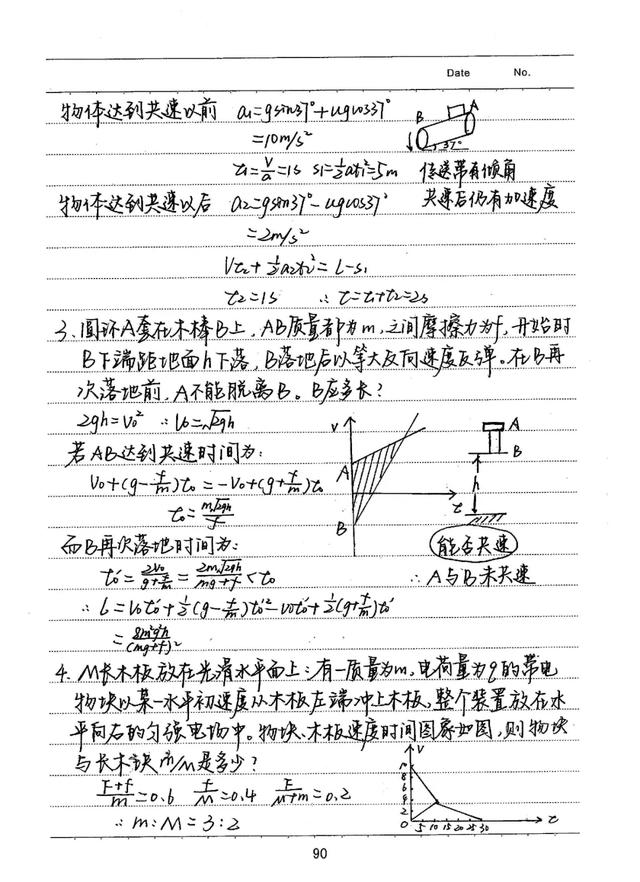 Date No.
物体达到共速以前 a₁=gsin37°+ugcos37°
=10m/s²
B A 37°
t₁=V/a=1s s₁=½at₁²=5m 传送带有倾角
物体达到共速以后 a₂=gsin37°-ugcos37° 共速后仍有加速度
=2m/s²
Vt₂+½a₂t₂²=L-s₁
t₂=1s ∴t=t₁+t₂=2s
3、圆环A套在木棒B上，AB质量都为m，之间摩擦力为f，开始时
B下端距地面h下落，B落地后以等大反向速度反弹。在B再
次落地前，A不能脱离B。B应多长？
2gh=V₀² ∴V₀=√2gh
V A B t
A B h
若AB达到共速时间为：
V₀+(g-f/m)t₀=-V₀+(g+f/m)t₀
t₀=m√2gh/f
而B再次落地时间为： 能否共速
t₀'=2V₀/(g+f/m)=2m√2gh/(mg+f)<t₀ ∴A与B未共速
∴L=V₀t₀'+½(g-f/m)t₀'²-V₀t₀'+½(g+f/m)t₀'
=8m²g²h/(mg+f)²
4、M长木板放在光滑水平面上：有一质量为m，电荷量为q的带电
物块以某一水平初速度从木板左端冲上木板，整个装置放在水
平向右的匀强电场中。物块、木板速度时间图象如图，则物块
与长木块m/M是多少？
(F+f)/m=0.6 f/M=0.4 F/(M+m)=0.2
∴m:M=3:2
V 8 6 4 2 0 5 10 15 20 25 30 t
90